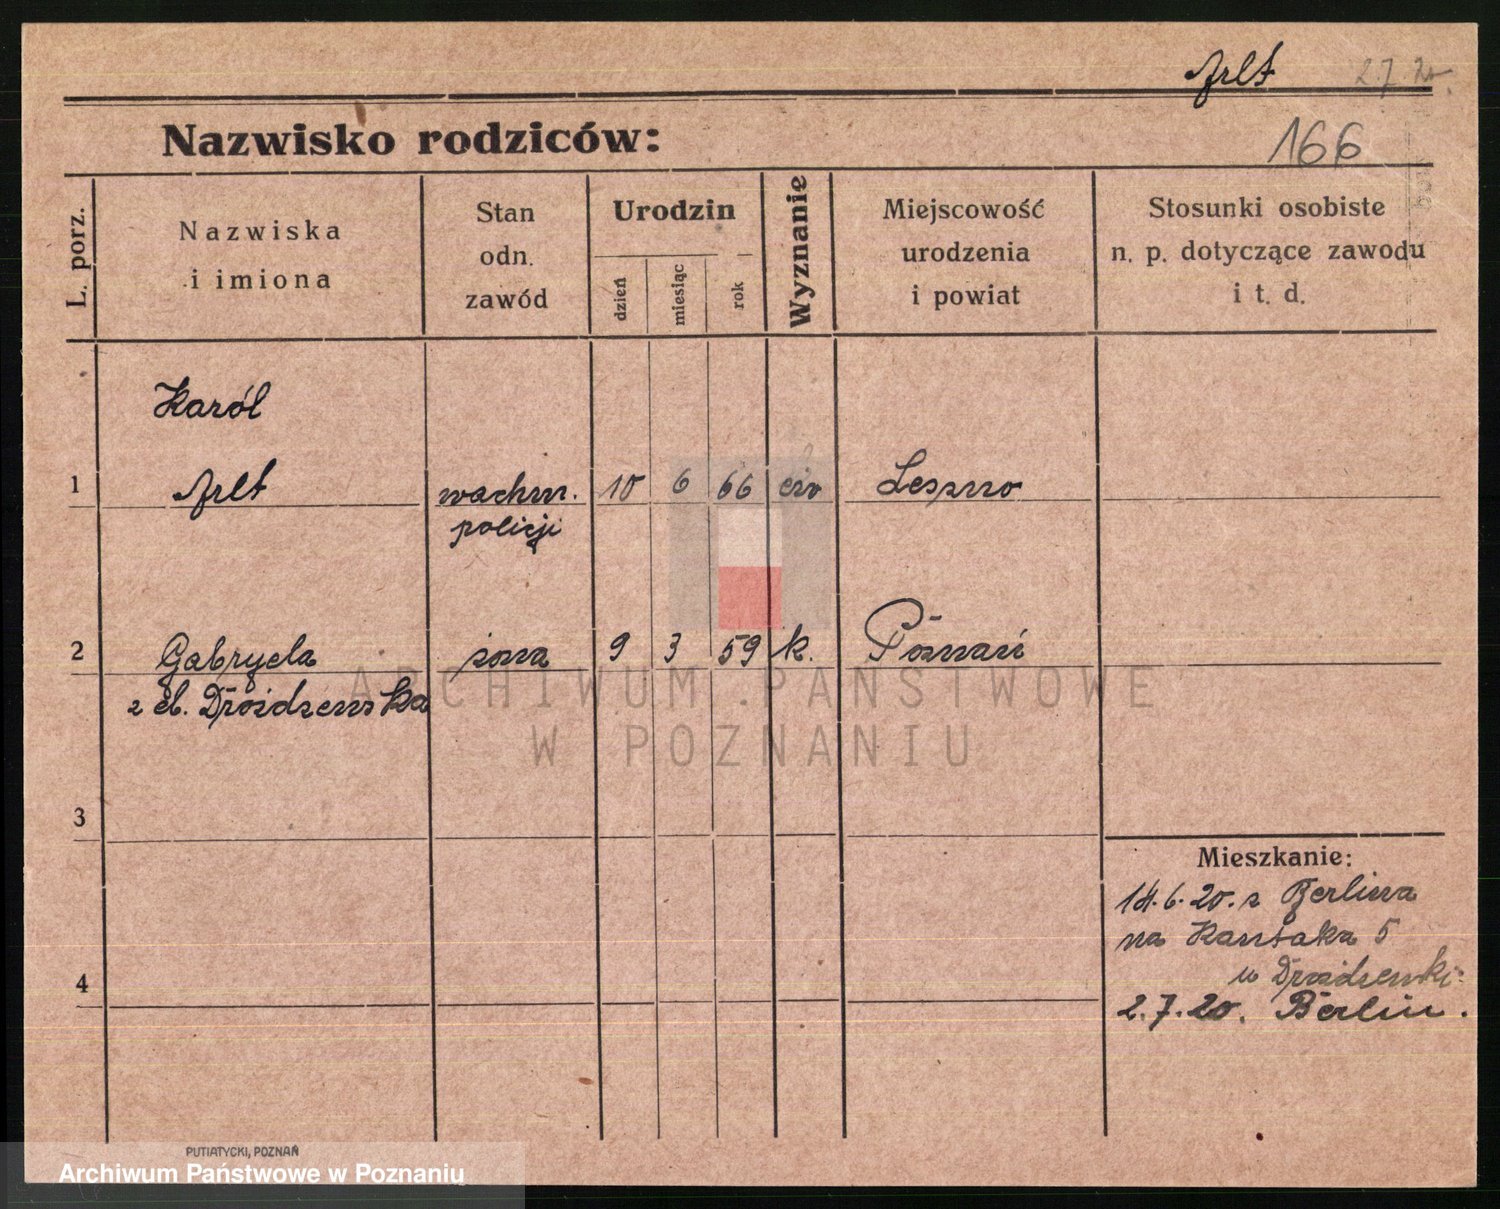 Arlt 2.7.20.
Nazwisko rodziców:
166
L. porz.
Nazwiska
i imiona
Stan
odn.
zawód
Urodzin
dzień
miesiąc
rok
Wyznanie
Miejscowość
urodzenia
i powiat
Stosunki osobiste
n. p. dotyczące zawodu
i t. d.
Karól
1 Arlt wachm. 10 6 66 ew Leszno
policji
2 Gabryela żona 9 3 59 k. Poznań
z d. Droidzenska
ARCHIWUM PAŃSTWOWE
W POZNANIU
3
Mieszkanie:
14.6.20. z Berlina
na Kantaka 5
4
u Droidzewski
2.7.20. Berlin.
PUTIATYCKI, POZNAŃ
Archiwum Państwowe w Poznaniu